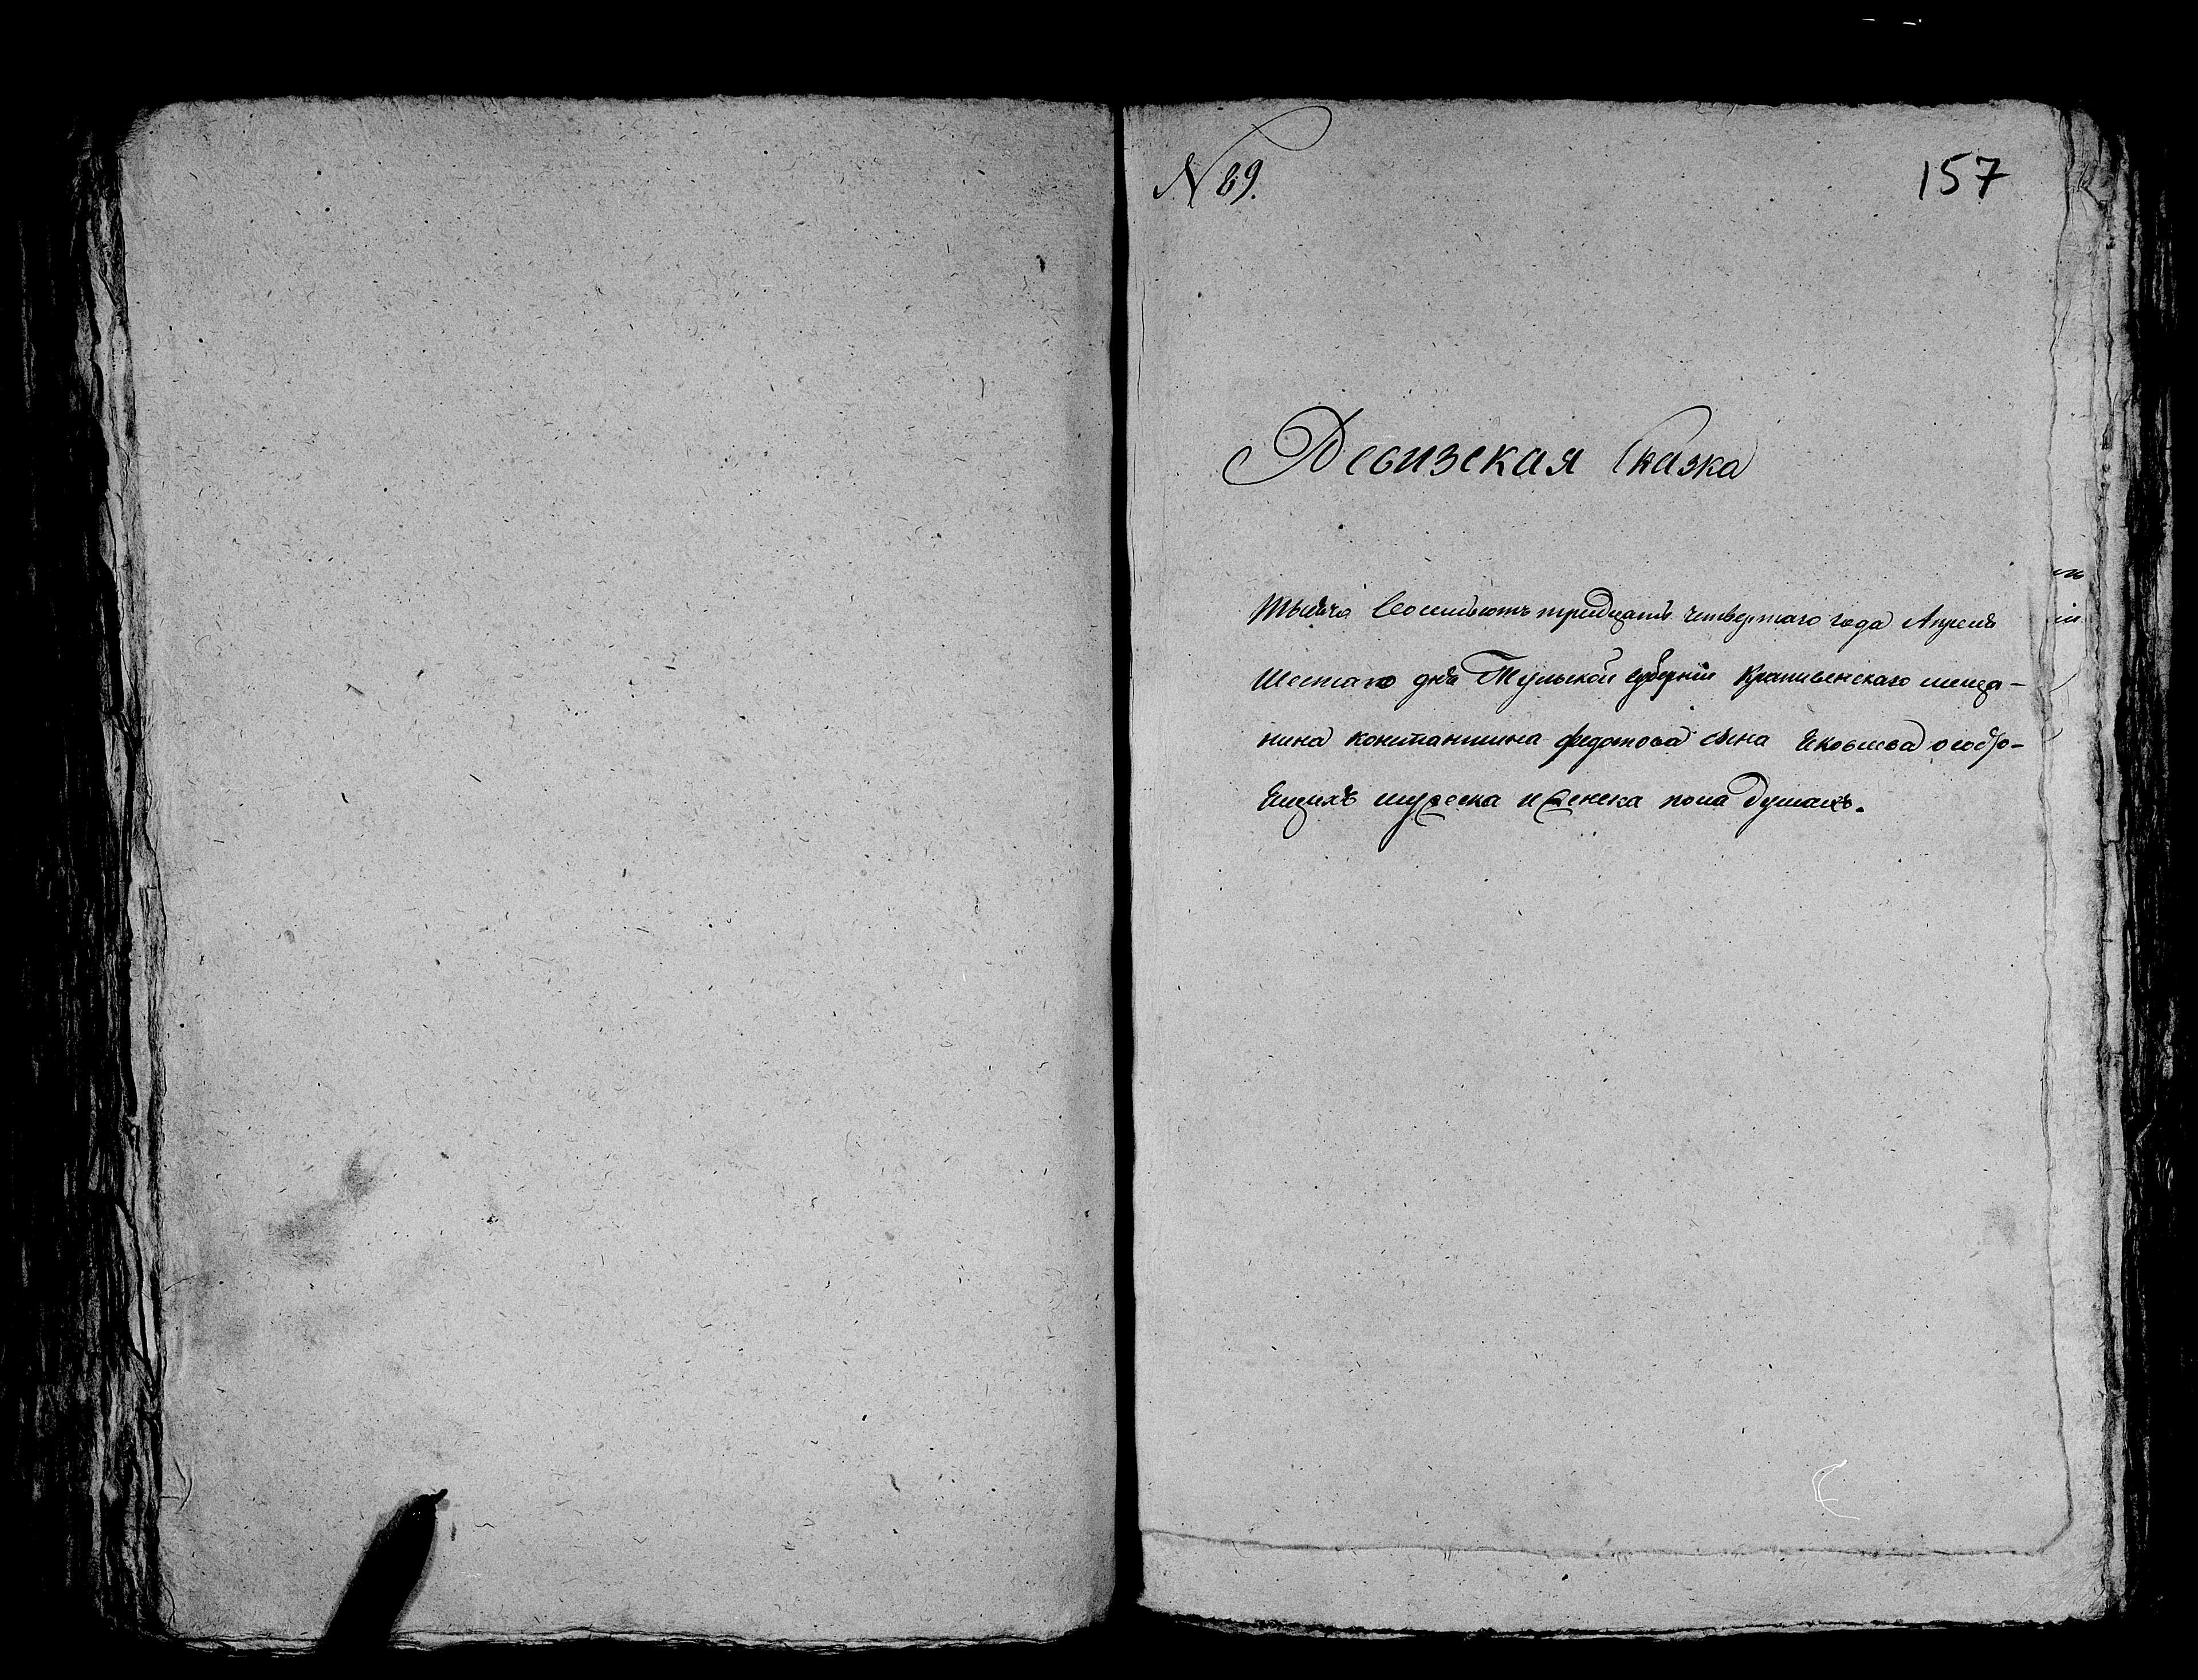 N 89.
157
Ревизская Сказка
Тысяча Восимьсотъ тридцать четвертаго года Апреля
Шестаго дня Тульской губерніи Крапивенскаго меща-
нина константина федотова сына Яковлева о состо-
Ящихъ мужеска и женска пола душахъ.